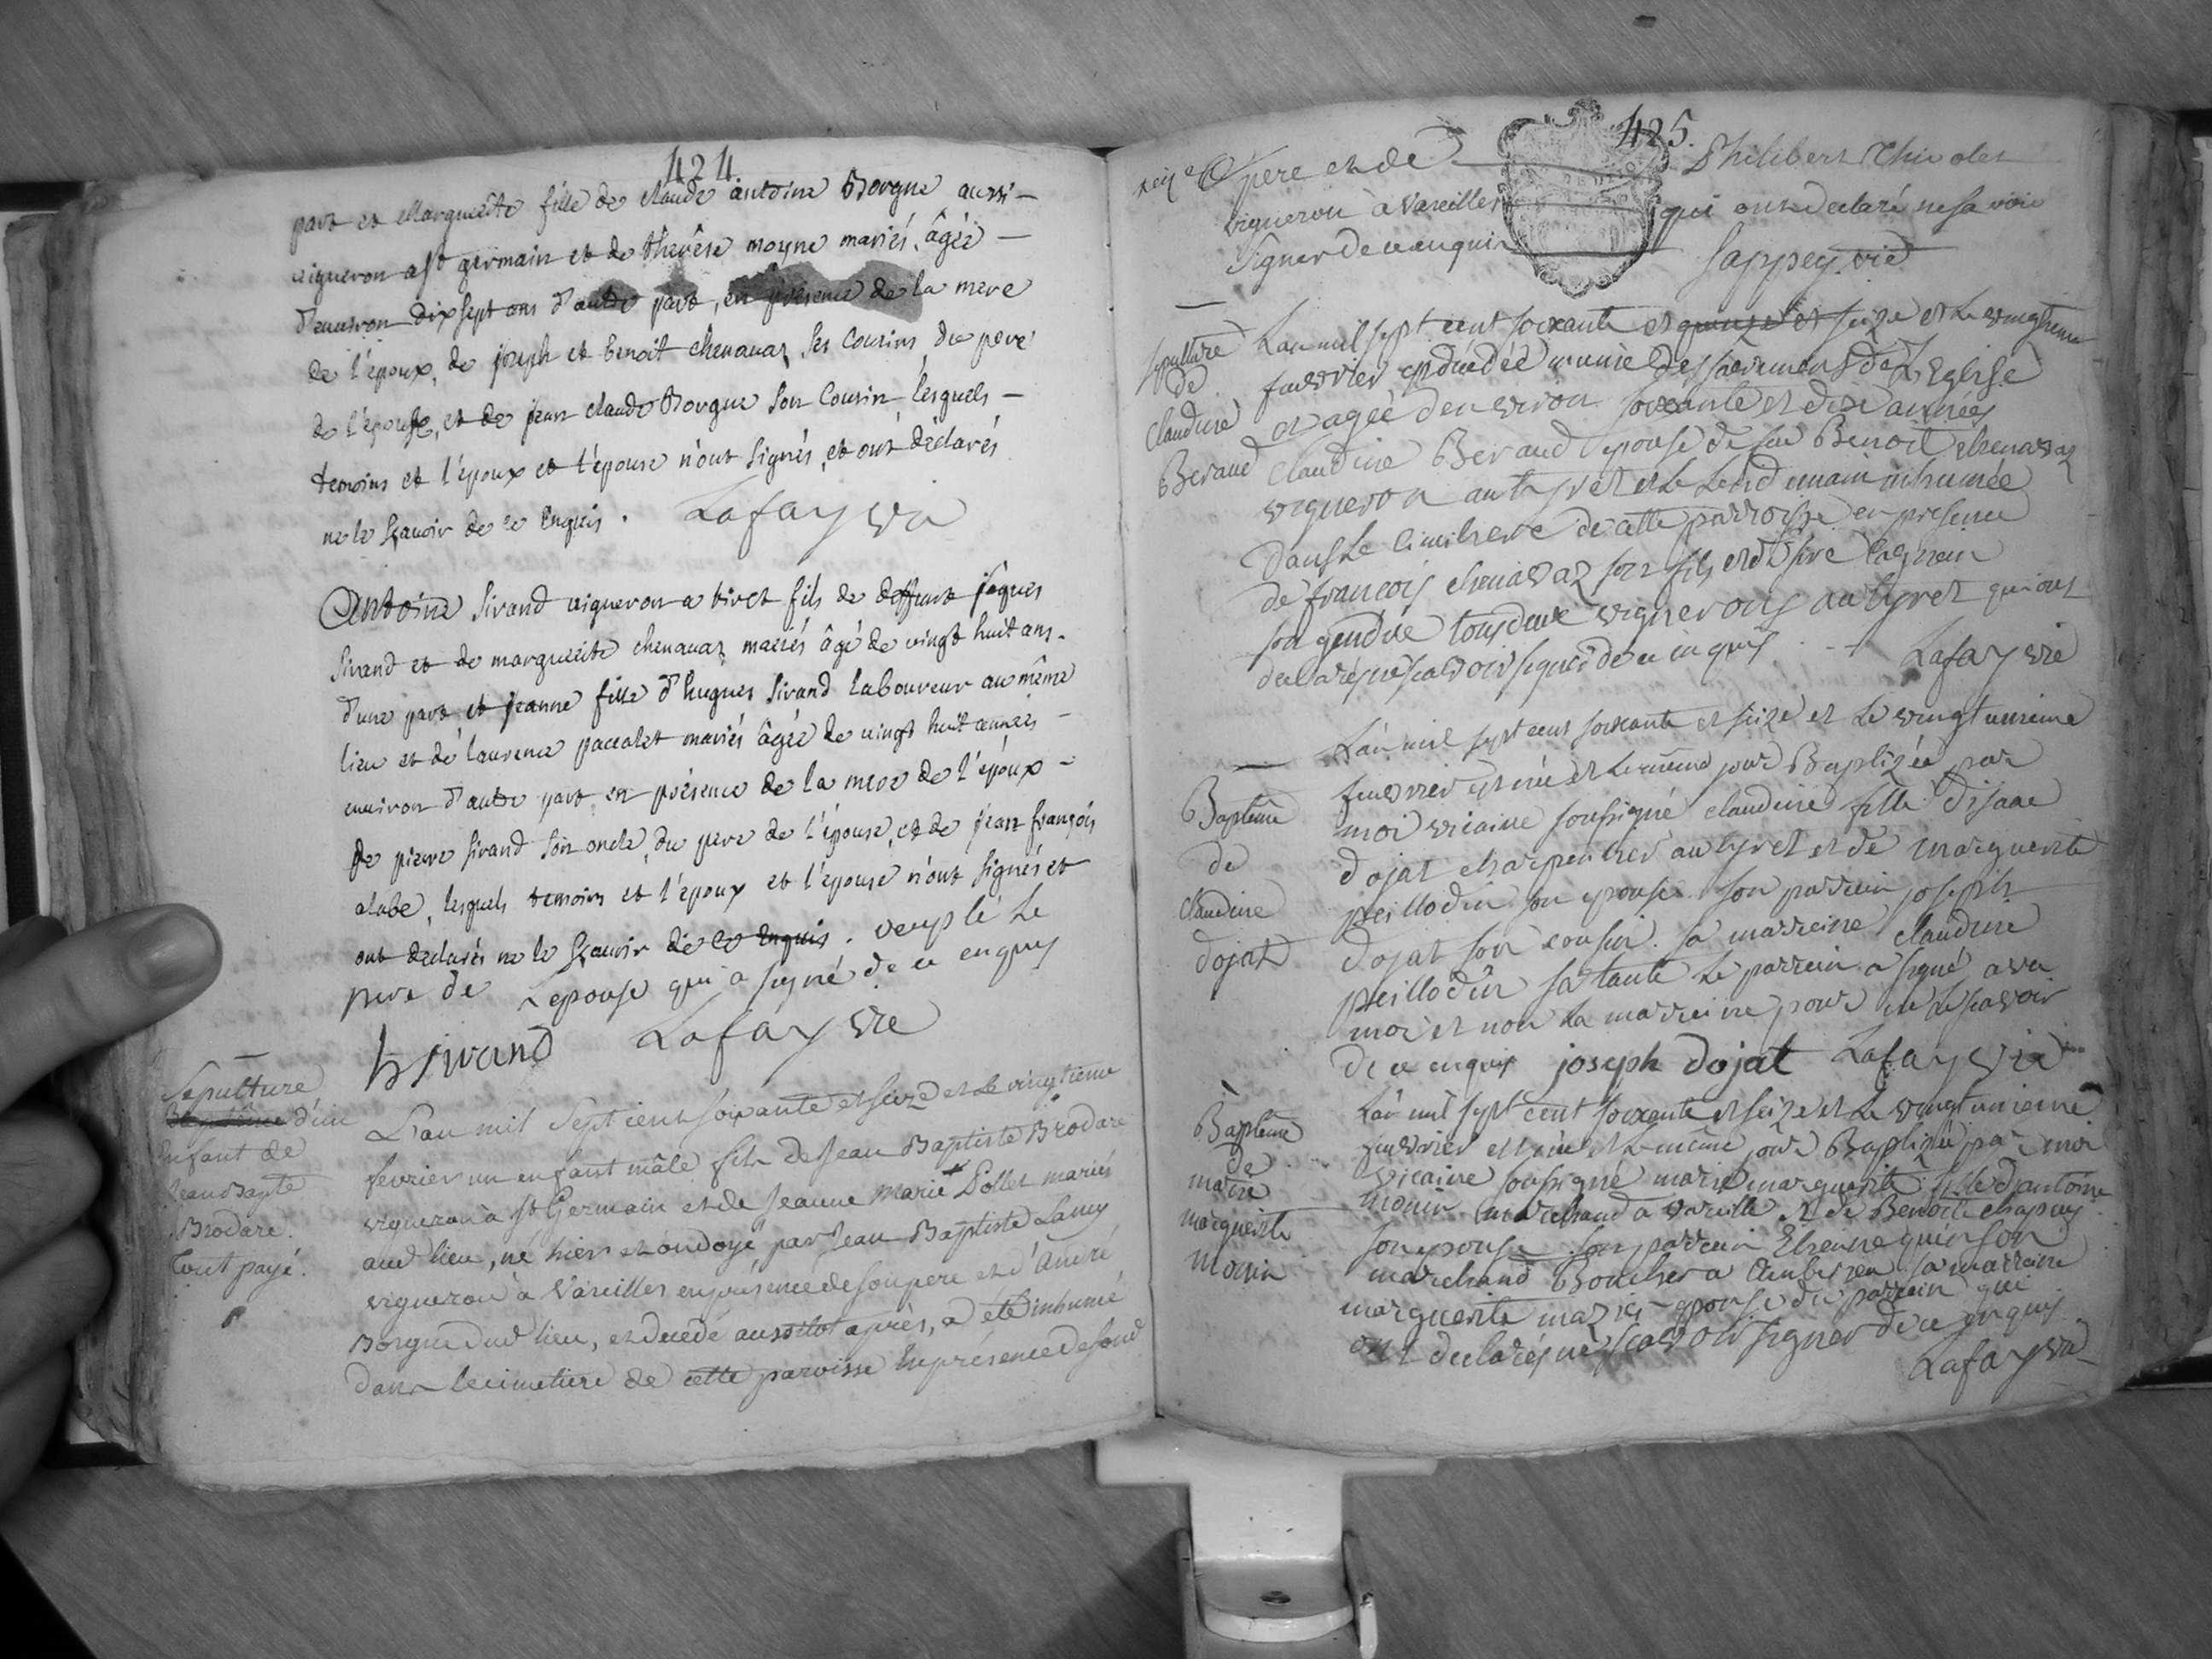 424
part et Marguerite fille de Claude antoine Borgne aussi
vigneron a st germain et de therêse moyne mariés, âgée
d'environ dix sept ans d'autre part, en présence de la mere
de l'époux, de joseph et benoit chenavaz ses Cousins, du pere
de l'épouse, et de jean claude Borgne son Cousin lesquels
temoins et l'époux et l'épouse n'ont signés, et ont déclarés
ne le sçavoir de ce Enquis. Lafay vic
Antoine Sirand vigneron a tiret fils de deffunt jâques
Sirand et de marguerite chenavaz mariés âgé de vingt huit ans
d'une part et jeanne fille d'hugues Sirand laboureur au même
lieu et de laurence paccalet mariés âgée de vingt huit années
environ d'autre part en présence de la mere de l'époux
de pierre Sirand son oncle, du pere de l'épouse, et de jean françois
alabe, lesquels temoins et l'époux et l'épouse n'ont signés et
ont déclarés ne le sçavoir de ce Enquis. exeplé le
pere de L'epouse qui a signé de ce enquis
h sirand Lafay vic
Sepulture
d'un
Enfant de
Jean Bapte
Brodare.
Tout payé.
L'an mil Sept cent soixante et seize et le vingtieme
fevrier un enfant mâle fils de Jean Baptiste Brodare
vigneron à St Germain et de Jeanne Marie Pollet mariés
aud lieu, né hier et ondoyé par Jean Baptiste Lamy
vigneron à Vareilles en présence de son pere et d'André
Borgne dud lieu, et decedé aussitot après, a été inhumé
dans le cimetiere de cette paroisse En présence de sond
425.
pere et de Philibert Chivolet
vigneron à Vareilles qui ont declaré ne savoir
Signer de ce enquis Sappey vic
sepulture
de
Claudine
Beraud
L'an mil sept cent soixante et quinze et seize et le vingtieme
fuevrier est décédée munie des sacrements de L'Eglise
et agée d'environ soixante et dix années
Claudine Beraud epouse de feu Benoit chenavaz
vigneron au tyret et le Lendemain inhumée
dans Le Cimithere de cette parroisse en presence
de francois chenavaz son fils et de
son gendre tous deux vignerons au tyret qui ont
declarés ne scavoir signer de ce enquis Lafay vic
Baptême
de
Claudine
dojat
L'an mil sept cent soixante et seize et Le vingt unieme
fuevrier est née et Le même jour Baptizée par
moi vicaire soussigné claudine fille d'isaac
dojat charpentier au tyret et de marguerite
peillodin son epouse son parrain joseph
dojat son cousin. sa marreine claudine
peillodin sa tante Le parrain a signé avec
moi et non La marreine pour ne Le scavoir
de ce enquis joseph dojat Lafay vic
Baptême
de
marie
marguerite
Monin
L'an mil sept cent soixante et seize et Le vingt unieme
fuevrier est née et Le même jour Baptizée par moi
vicaire soussigné marie marguerite fille d'antoine
monin marchand a vareille et de Benoite chapuy
son epouse son parrain Etienne quinson
marchand Boucher a Ambeyrieu sa marraine
marguerite epouse du parrain qui
ont declarés ne scavoir signer de ce enquis
Lafay vic